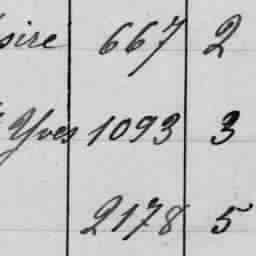 667 2
Yves 1093 3
2178 5